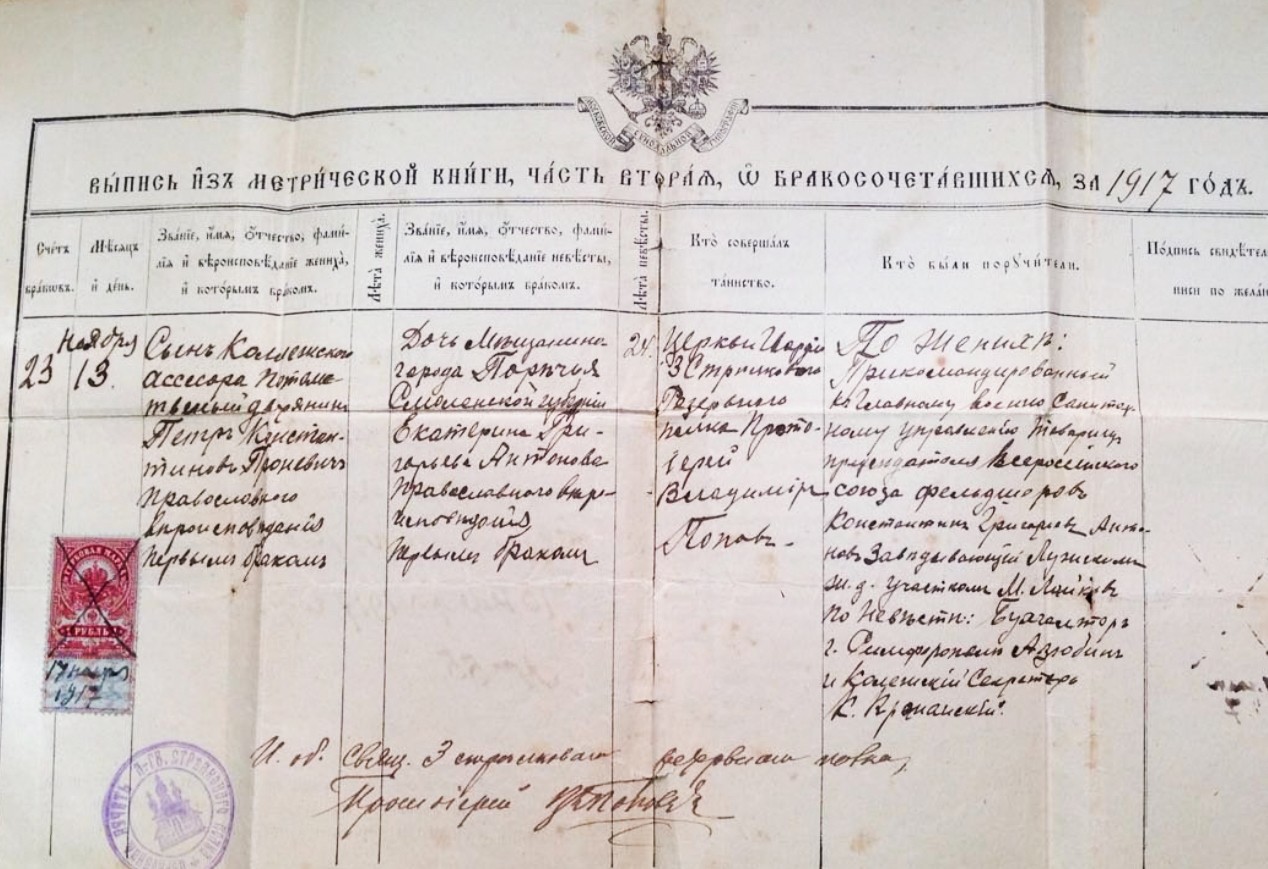 МОСКОВСКОЙ СѴНОДАЛЬНОЙ ТИПОГРАФІИ
ВЫ́ПИСЬ И҆ЗЪ МЕТРИ́ЧЕСКОЙ КНИ́ГИ, ЧА́СТЬ ВТОРА́Ѧ, Ѡ҆ БРАКОСОЧЕТА́ВШИХСѦ, ЗА 1917 ГО́ДЪ.
Счетъ
бра́кѡвъ.
Мѣ́сѧцъ
и҆ де́нь.
Зва́нїе, и҆́мѧ, ѻ҆́тчество, фами́-
лїѧ и҆ вѣроисповѣ́данїе жениха̀,
и҆ кото́рымъ бра́комъ.
Лѣ́та жениха̀.
Зва́нїе, и҆́мѧ, ѻ҆́тчество, фами́-
лїѧ и҆ вѣроисповѣ́данїе невѣ́сты,
и҆ кото́рымъ бра́комъ.
Лѣ́та невѣ́сты.
Кто̀ соверша́лъ
та́инство.
Кто̀ бы́ли порꙋчи́тели.
По́дпись свидѣ́тел
писи по жела́н
23
Ноября
13.
Сынъ Коллежскаго
ассесора потомс
твенный дворянинъ
Петръ Констан-
тиновъ Проневичъ
православнаго
вѣроисповѣданія
первымъ бракомъ
Дочь Мѣщанина
города Порѣчья
Смоленской губерніи
Екатерина Гри-
горьева Антонова
Православнаго вѣро-
исповѣданія
первымъ бракомъ
24.
Церкви Гвардіи
3 Стрѣлковаго
Резервнаго
полка Прото-
іерей
Владиміръ
Поповъ.
По Женихѣ:
Прикомандированный
къ Главному военно Санитар
ному управленію товарищъ
предсѣдателя Всероссійскаго
союза фельдшеровъ
Константинъ Григорьевъ Анто-
новъ Завѣдывающій Лужскимъ
участкомъ М.
По Невѣстѣ: Бухгалтеръ
г. Симферополя
и Колежскій Секретарь
К.
РУБЛЬ
17 ноября
1917
И. об. свящ. 3 стрѣлковаго резервнаго полка,
Протоіерей В Поповъ